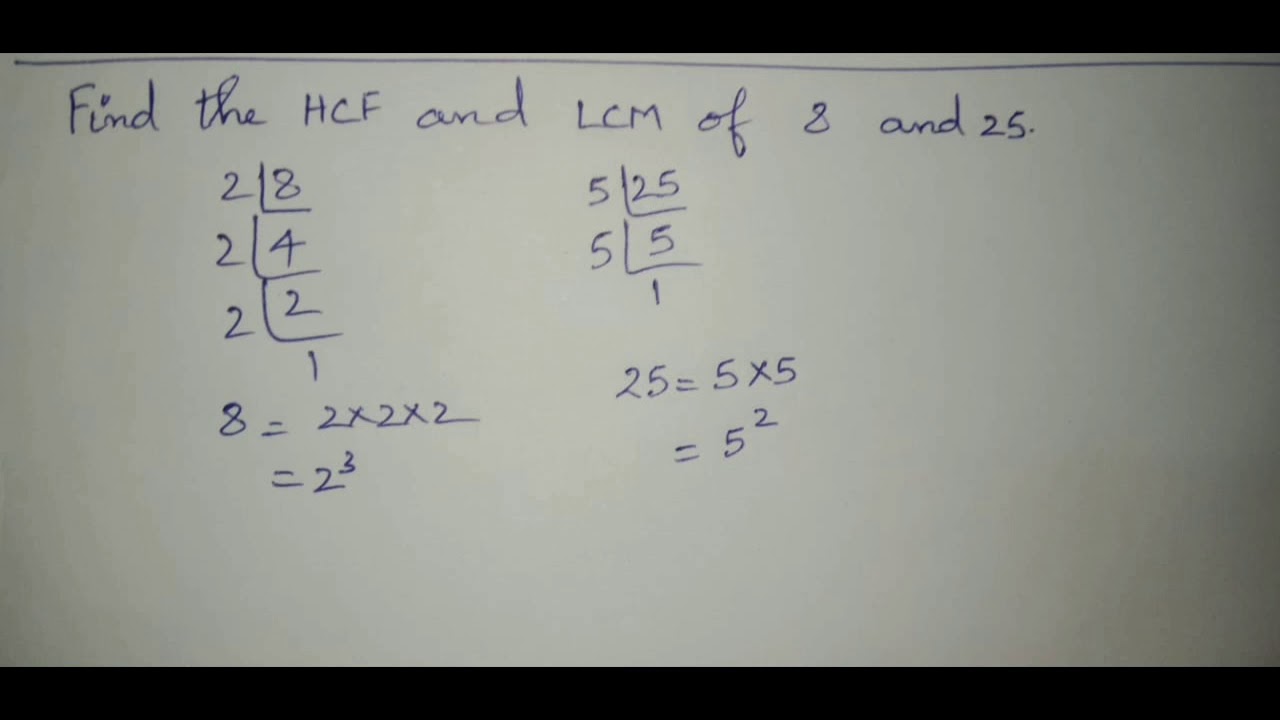 Find the HCF and LCM of 8 and 25.
2 8
2 4
2 2
1
8 = 2×2×2
= 2³
5 25
5 5
1
25 = 5×5
= 5²